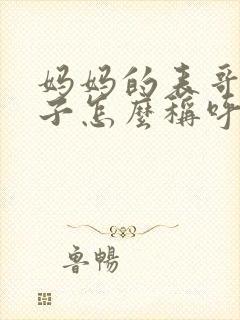 妈妈的表哥
子怎麽稱呼
鲁暢